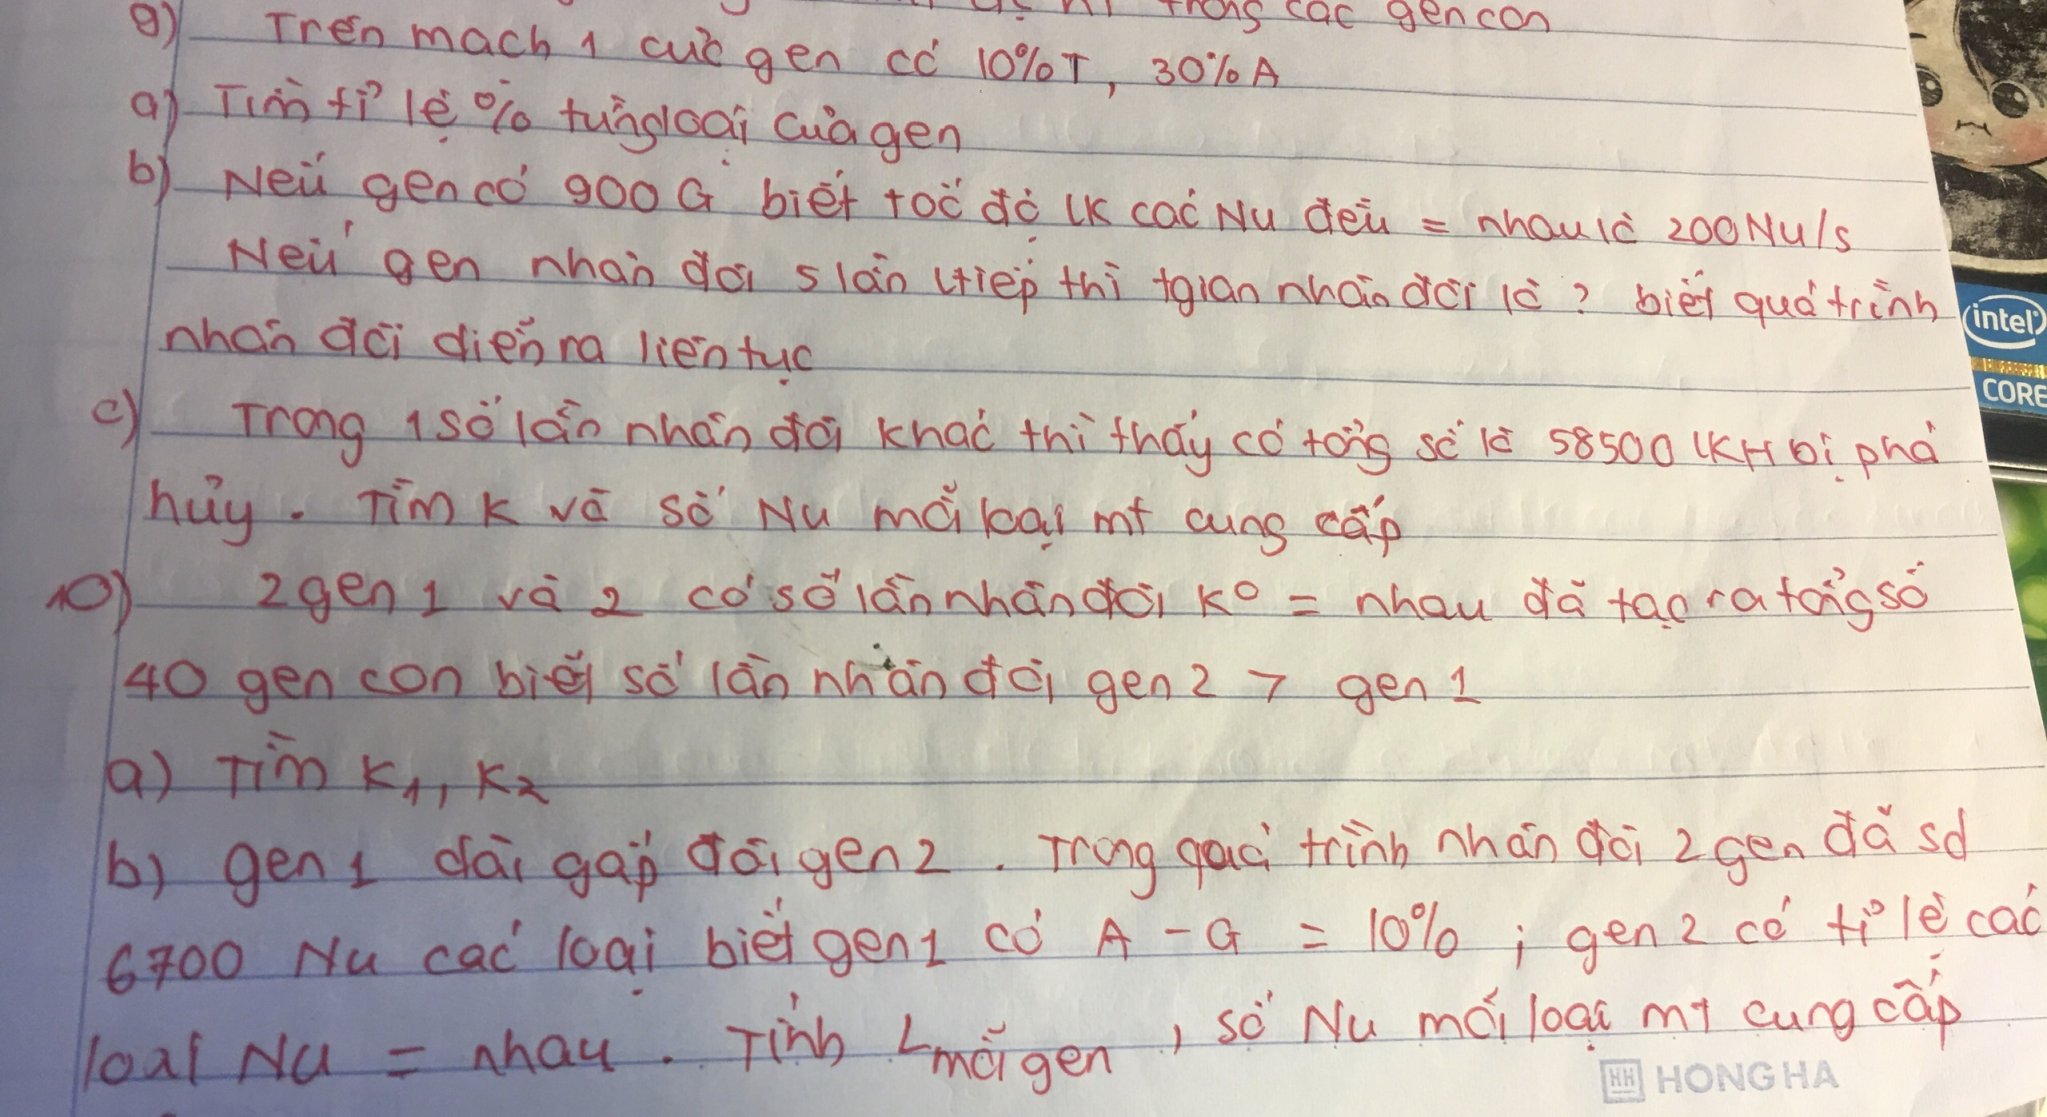 trong các gen con
9) Trên mạch 1 của gen có 10%T, 30%A
a) Tìm tỉ lệ % từng loại của gen
b) Nếu gen có 900 G biết tốc độ LK các Nu đều = nhau là 200 Nu/s
Nếu gen nhân đôi 5 lần ltiếp thì tgian nhân đôi là? biết quá trình
nhân đôi diễn ra liên tục
c) Trong 1 số lần nhân đôi khác thì thấy có tổng số là 58500 LKH bị phá
hủy. Tìm K và số Nu mỗi loại mt cung cấp
10) 2 gen 1 và 2 có số lần nhân đôi K⁰ = nhau đã tạo ra tổng số
40 gen con biết số lần nhân đôi gen 2 > gen 1
a) Tìm K1, K2
b) gen 1 dài gấp đôi gen 2. Trong quá trình nhân đôi 2 gen đã sd
6700 Nu các loại biết gen 1 có A - G = 10%; gen 2 có tỉ lệ các
loại Nu = nhau. Tính L mỗi gen, số Nu mỗi loại mt cung cấp
intel
CORE
HH HONG HA